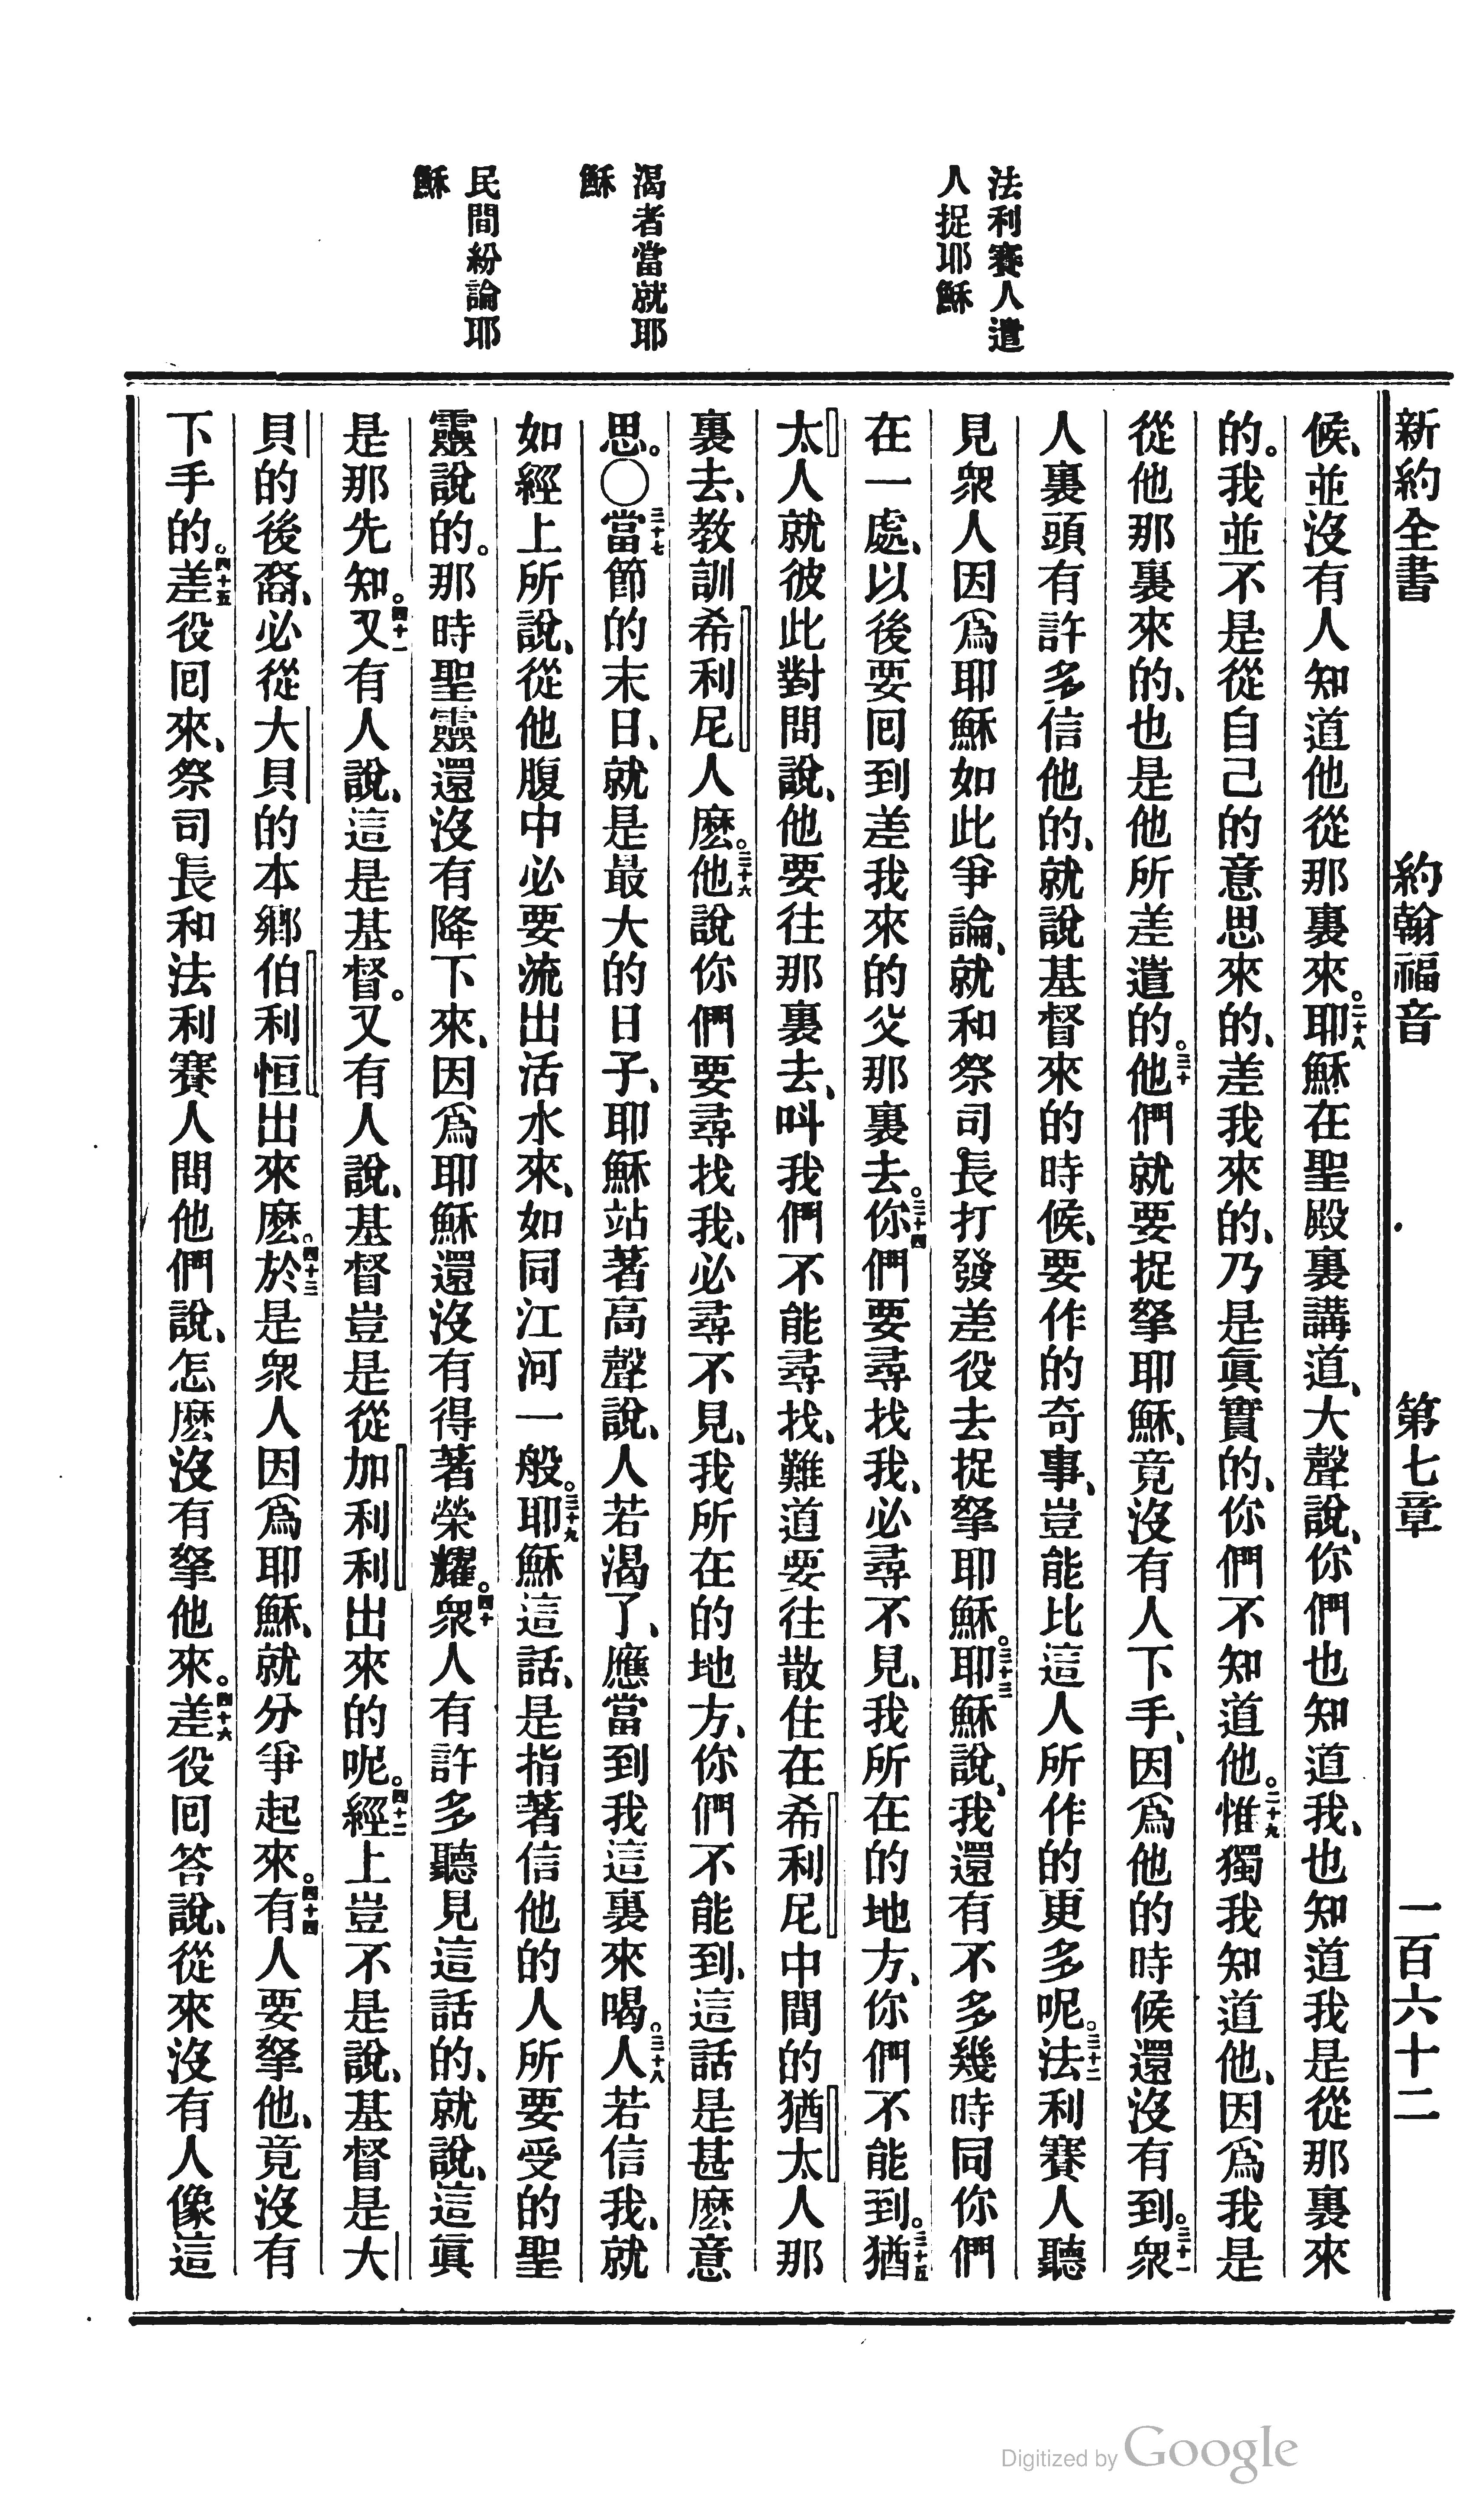 新約全書 約翰福音 第七章 一百六十二
法利賽人遣
人捉耶穌
渴者當就耶
穌
民間紛論耶
穌
候、並沒有人知道他從那裏來。二十八耶穌在聖殿裏講道、大聲說、你們也知道我、也知道我是從那裏來
的。我並不是從自己的意思來的、差我來的、乃是眞實的、你們不知道他。二十九惟獨我知道他、因爲我是
從他那裏來的、也是他所差遣的。三十他們就要捉拏耶穌、竟沒有人下手、因爲他的時候還沒有到。三十一衆
人裏頭有許多信他的、就說基督來的時候、要作的奇事、豈能比這人所作的更多呢。三十二法利賽人聽
見衆人因爲耶穌如此爭論、就和祭司長打發差役去捉拏耶穌。三十三耶穌說、我還有不多幾時同你們
在一處、以後要囘到差我來的父那裏去。三十四你們要尋找我、必尋不見、我所在的地方、你們不能到。三十五猶
太人就彼此對問說、他要往那裏去、呌我們不能尋找、難道要往散住在希利尼中間的猶太人那
裏去、教訓希利尼人麽。三十六他說你們要尋找我、必尋不見、我所在的地方、你們不能到、這話是甚麽意
思。〇三十七當節的末日、就是最大的日子、耶穌站著高聲說、人若渴了、應當到我這裏來喝。三十八人若信我、就
如經上所說、從他腹中必要流出活水來、如同江河一般。三十九耶穌這話、是指著信他的人所要受的聖
靈說的。那時聖靈還沒有降下來、因爲耶穌還沒有得著榮耀。四十衆人有許多聽見這話的、就說、這眞
是那先知。四十一又有人說、這是基督。又有人說、基督豈是從加利利出來的呢。四十二經上豈不是說、基督是大
貝的後裔、必從大貝的本鄉伯利恒出來麽。四十三於是衆人因爲耶穌、就分爭起來。四十四有人要拏他、竟沒有
下手的。四十五差役囘來、祭司長和法利賽人問他們說、怎麽沒有拏他來。四十六差役囘答說、從來沒有人像這
Digitized by Google